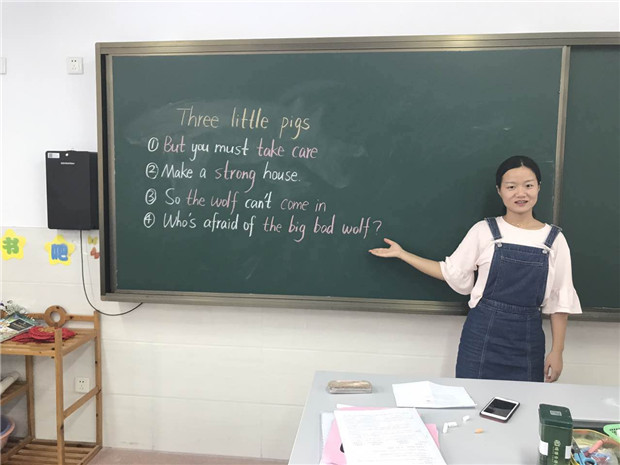 Three little pigs
① But you must take care
② Make a strong house.
③ So the wolf can't come in
④ Who's afraid of the big bad wolf?
书吧